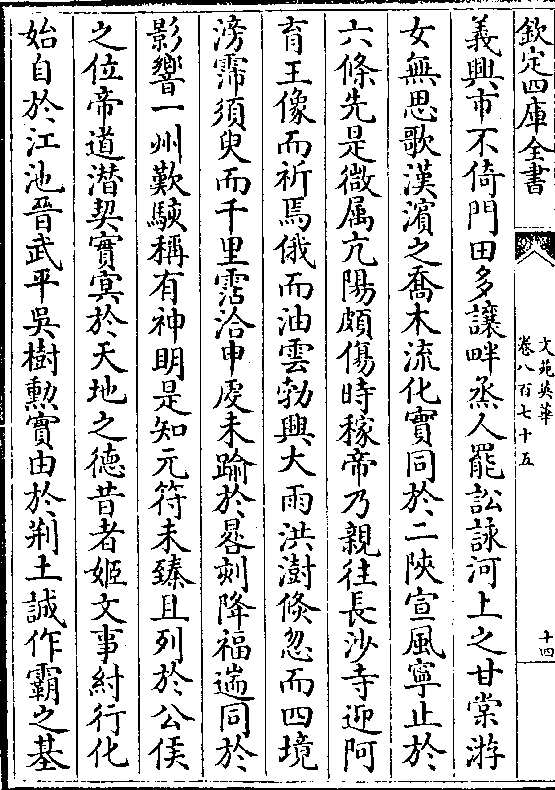 欽定四庫全書
文苑英華
卷八百七十五
十四
義興市不倚門田多讓畔烝人罷訟詠河上之甘棠游
女無思歌漢濱之喬木流化實同於二陜宣風寧止於
六條先是微属亢陽頗傷時稼帝乃親往長沙寺迎阿
育王像而祈焉俄而油雲勃興大雨洪澍倐忽而四境
滂霈須臾而千里霑洽申虔未踰於晷刻降福遄同於
影響一州歎駭稱有神明是知元符未臻且列於公侯
之位帝道潜契實㝠於天地之德昔者姬文事紂行化
始自於江池晉武平吳樹勲實由於荆土誠作霸之基